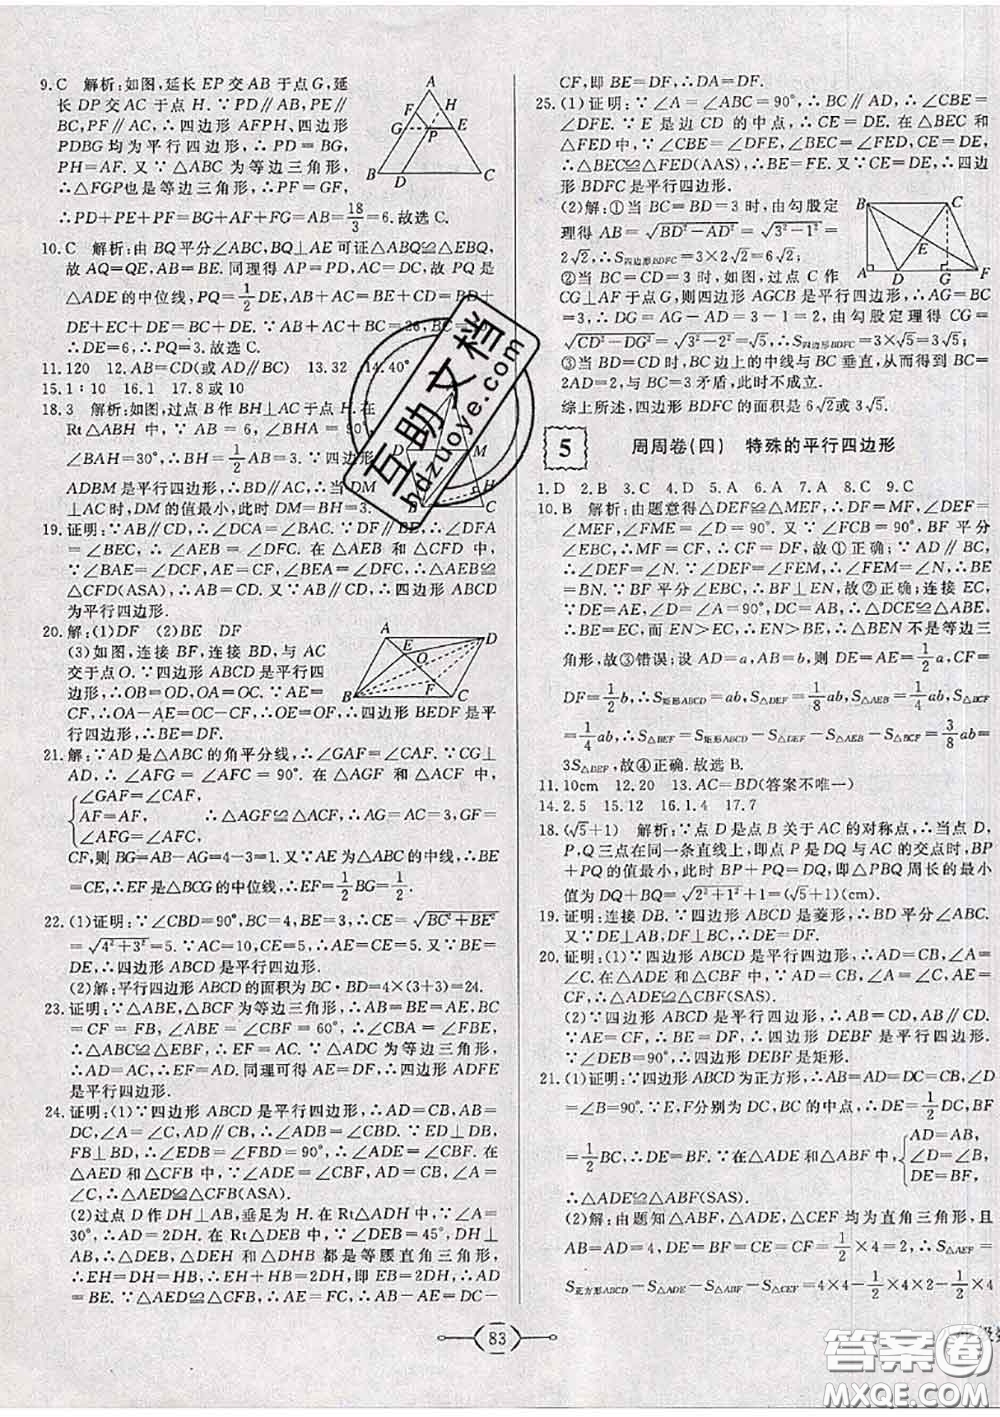 9.C　解析:如图,延长 EP 交 AB 于点 G,延
长 DP 交 AC 于点 H.∵PD∥AB,PE∥
BC,PF∥AC,∴四边形 AFPH、四边形
PDBG 均为平行四边形,∴PD=BG,
PH=AF.又∵△ABC 为等边三角形,
∴△FGP也是等边三角形,∴PF=GF,
∴PD+PE+PF=BG+AF+FG=AB=18/3=6.故选 C.
A
F
H
G
P
E
B
D
C
10.C　解析:由 BQ 平分∠ABC,BQ⊥AE 可证△ABQ≌△EBQ,
故 AQ=QE,AB=BE.同理得 AP=PD,AC=DC,故 PQ 是
△ADE 的中位线,PQ=1/2DE,AB+AC=BE+CD=BD+
DE+EC+DE=BC+DE.又∵AB+AC+BC=26,BC=
∴DE=6,∴PQ=3.故选 C.
11.120　12.AB=CD(或 AD∥BC)　13.32　14.40°
15.1∶10　16.1　17.8或10
18.3　解析:如图,过点 B 作 BH⊥AC 于点 H.在
Rt△ABH 中,∵AB=6,∠BHA=90°,
∠BAH=30°,∴BH=1/2AB=3.∵四边形
ADBM 是平行四边形,∴BD∥AC,∴当 DM
⊥AC 时,DM 的值最小,此时 DM=BH=3.
D
M
H
C
19.证明:∵AB∥CD,∴∠DCA=∠BAC.∵DF∥BE,∴∠DFA
=∠BEC,∴∠AEB=∠DFC.在△AEB 和△CFD 中,
∵∠BAE=∠DCF,AE=CF,∠BEA=∠DFC,∴△AEB≌
△CFD(ASA),∴AB=CD.又∵AB∥CD,∴四边形 ABCD
为平行四边形.
20.解:(1)DF　(2)BE　DF
(3)如图,连接 BF,连接 BD,与 AC
交于点 O.∵四边形 ABCD 是平行四
边形,∴OB=OD,OA=OC.∵AE=
CF,∴OA-AE=OC-CF,∴OE=OF,∴四边形 BEDF 是平
行四边形,∴BE=DF.
A
D
E
O
F
B
C
21.解:∵AD 是△ABC 的角平分线,∴∠GAF=∠CAF.∵CG⊥
AD,∴∠AFG=∠AFC=90°.在△AGF 和△ACF 中,
∠GAF=∠CAF,
AF=AF,　∴△AGF≌△ACF,∴AG=AC=3,GF=
∠AFG=∠AFC,
CF,则 BG=AB-AG=4-3=1.又∵AE 为△ABC 的中线,∴BE
=CE,∴EF 是△BCG 的中位线,∴EF=1/2BG=1/2.
22.(1)证明:∵∠CBD=90°,BC=4,BE=3,∴CE=√(BC²+BE²)
=√(4²+3²)=5.∵AC=10,CE=5,∴AE=CE=5.又∵BE=
DE,∴四边形 ABCD 是平行四边形.
(2)解:平行四边形 ABCD 的面积为 BC·BD=4×(3+3)=24.
23.证明:∵△ABE,△BCF 为等边三角形,∴AB=BE=AE,BC
=CF=FB,∠ABE=∠CBF=60°,∴∠CBA=∠FBE,
∴△ABC≌△EBF,∴EF=AC.又∵△ADC 为等边三角形,
∴CD=AD=AC,∴EF=AD.同理可得 AE=DF,∴四边形 ADFE
是平行四边形.
24.证明:(1)∵四边形 ABCD 是平行四边形,∴AD=CB,AB=
DC,∠A=∠C,AD∥CB,∴∠ADB=∠CBD.∵ED⊥DB,
FB⊥BD,∴∠EDB=∠FBD=90°,∴∠ADE=∠CBF.在
△AED 和△CFB 中,∵∠ADE=∠CBF,AD=CB,∠A=
∠C,∴△AED≌△CFB(ASA).
(2)过点 D 作 DH⊥AB,垂足为 H.在 Rt△ADH 中,∵∠A=
30°,∴AD=2DH.在 Rt△DEB 中,∵∠DEB=45°,DH⊥
AB,∴△DEB,△DEH 和△DHB 都是等腰直角三角形,
∴EH=DH=HB,∴EB=EH+HB=2DH,即 EB=2DH,∴AD
=BE.∵△ADE≌△CBF,∴AE=FC,∴AB-AE=DC-
CF,即 BE=DF,∴DA=DF.
25.(1)证明:∵∠A=∠ABC=90°,∴BC∥AD,∴∠CBE=
∠DFE.∵E 是边 CD 的中点,∴CE=DE.在△BEC 和
△FED 中,∵∠CBE=∠DFE,∠BEC=∠FED,CE=DE,
∴△BEC≌△FED(AAS),∴BE=FE.又∵CE=DE,∴四边
形 BDFC 是平行四边形.
(2)解:①当 BC=BD=3 时,由勾股定
理得 AB=√(BD²-AD²)=√(3²-1²)=
2√2,∴S四边形BDFC=3×2√2=6√2;
②当 BC=CD=3 时,如图,过点 C 作
CG⊥AF 于点 G,则四边形 AGCB 是平行四边形,∴AG=BC
=3,∴DG=AG-AD=3-1=2,由勾股定理得 CG=
√(CD²-DG²)=√(3²-2²)=√5,∴S四边形BDFC=3×√5=3√5;
③当 BD=CD 时,BC 边上的中线与 BC 垂直,从而得到 BC=
2AD=2,与 BC=3 矛盾,此时不成立.
综上所述,四边形 BDFC 的面积是 6√2或 3√5.
B
C
E
A
D
G
F
5　周周卷(四)　特殊的平行四边形
1.D　2.B　3.C　4.D　5.A　6.A　7.A　8.C　9.C
10.B　解析:由题意得△DEF≌△MEF,∴DF=MF,∠DEF=
∠MEF,∠FME=∠D=90°.又∵∠BCF=90°,BF 平分
∠EBC,∴MF=CF,∴DF=CF,故①正确;∵AD∥BC,
∴∠DEF=∠N.∵∠DEF=∠FEM,∴∠FEM=∠N,∴BE=
BN.∵BF 平分∠EBC,∴BF⊥EN,故②正确;连接 EC,
∵DE=AE,∠A=∠D=90°,AB=CD,∴△DCE≌△ABE,
∴BE=EC,而 EN>EC,∴EN>BE,∴△BEN 不是等边三
角形,故③错误;设 AD=a,AB=b,则 DE=AE=1/2a,CF=
DF=1/2b,∴S矩形ABCD=ab,S△DEF=1/8ab,S△ABE=1/4ab,S△BCF=
1/4ab,∴S△BEF=S矩形ABCD-S△DEF-S△ABE-S△BCF=3/8ab=
3S△DEF,故④正确.故选 B.
11.10cm　12.20　13.AC=BD(答案不唯一)
14.2.5　15.12　16.1.4　17.7
18.(√5+1)　解析:∵点 D 是点 B 关于 AC 的对称点,∴当点 D,
P,Q 三点在同一条直线上,即点 P 是 DQ 与 AC 的交点时,BP
+PQ 的值最小,此时 BP+PQ=DQ,即△PBQ 周长的最小
值为 DQ+BQ=√(2²+1²)+1=(√5+1)(cm).
19.证明:连接 DB.∵四边形 ABCD 是菱形,∴BD 平分∠ABC.
又∵DE⊥AB,DF⊥BC,∴DE=DF.
20.证明:(1)∵四边形 ABCD 是平行四边形,∴AD=CB,∠A=
∠C.在△ADE 和△CBF 中,∵AD=CB,∠A=∠C,AE=
CF,∴△ADE≌△CBF(SAS).
(2)∵四边形 ABCD 是平行四边形,∴AB=CD,AB∥CD.
∵AE=CF,∴BE=DF,∴四边形 DEBF 是平行四边形.
∵∠DEB=90°,∴四边形 DEBF 是矩形.
21.(1)证明:∵四边形 ABCD 为正方形,∴AB=AD=DC=CB,∠D
=∠B=90°.∵E,F 分别为 DC,BC 的中点,∴DE=1/2DC,BF=
1/2BC,∴DE=BF.∵在△ADE 和△ABF 中,
AD=AB,
∠D=∠B,
DE=BF,
∴△ADE≌△ABF(SAS).
(2)解:由题知△ABF,△ADE,△CEF 均为直角三角形,且
AB=AD=4,DE=BF=CE=CF=1/2×4=2,∴S△AEF=
S正方形ABCD-S△ADE-S△ABF-S△CEF=4×4-1/2×4×2-1/2×
83
互助文档
hdzuoye.com
答案圈
MXQE.COM